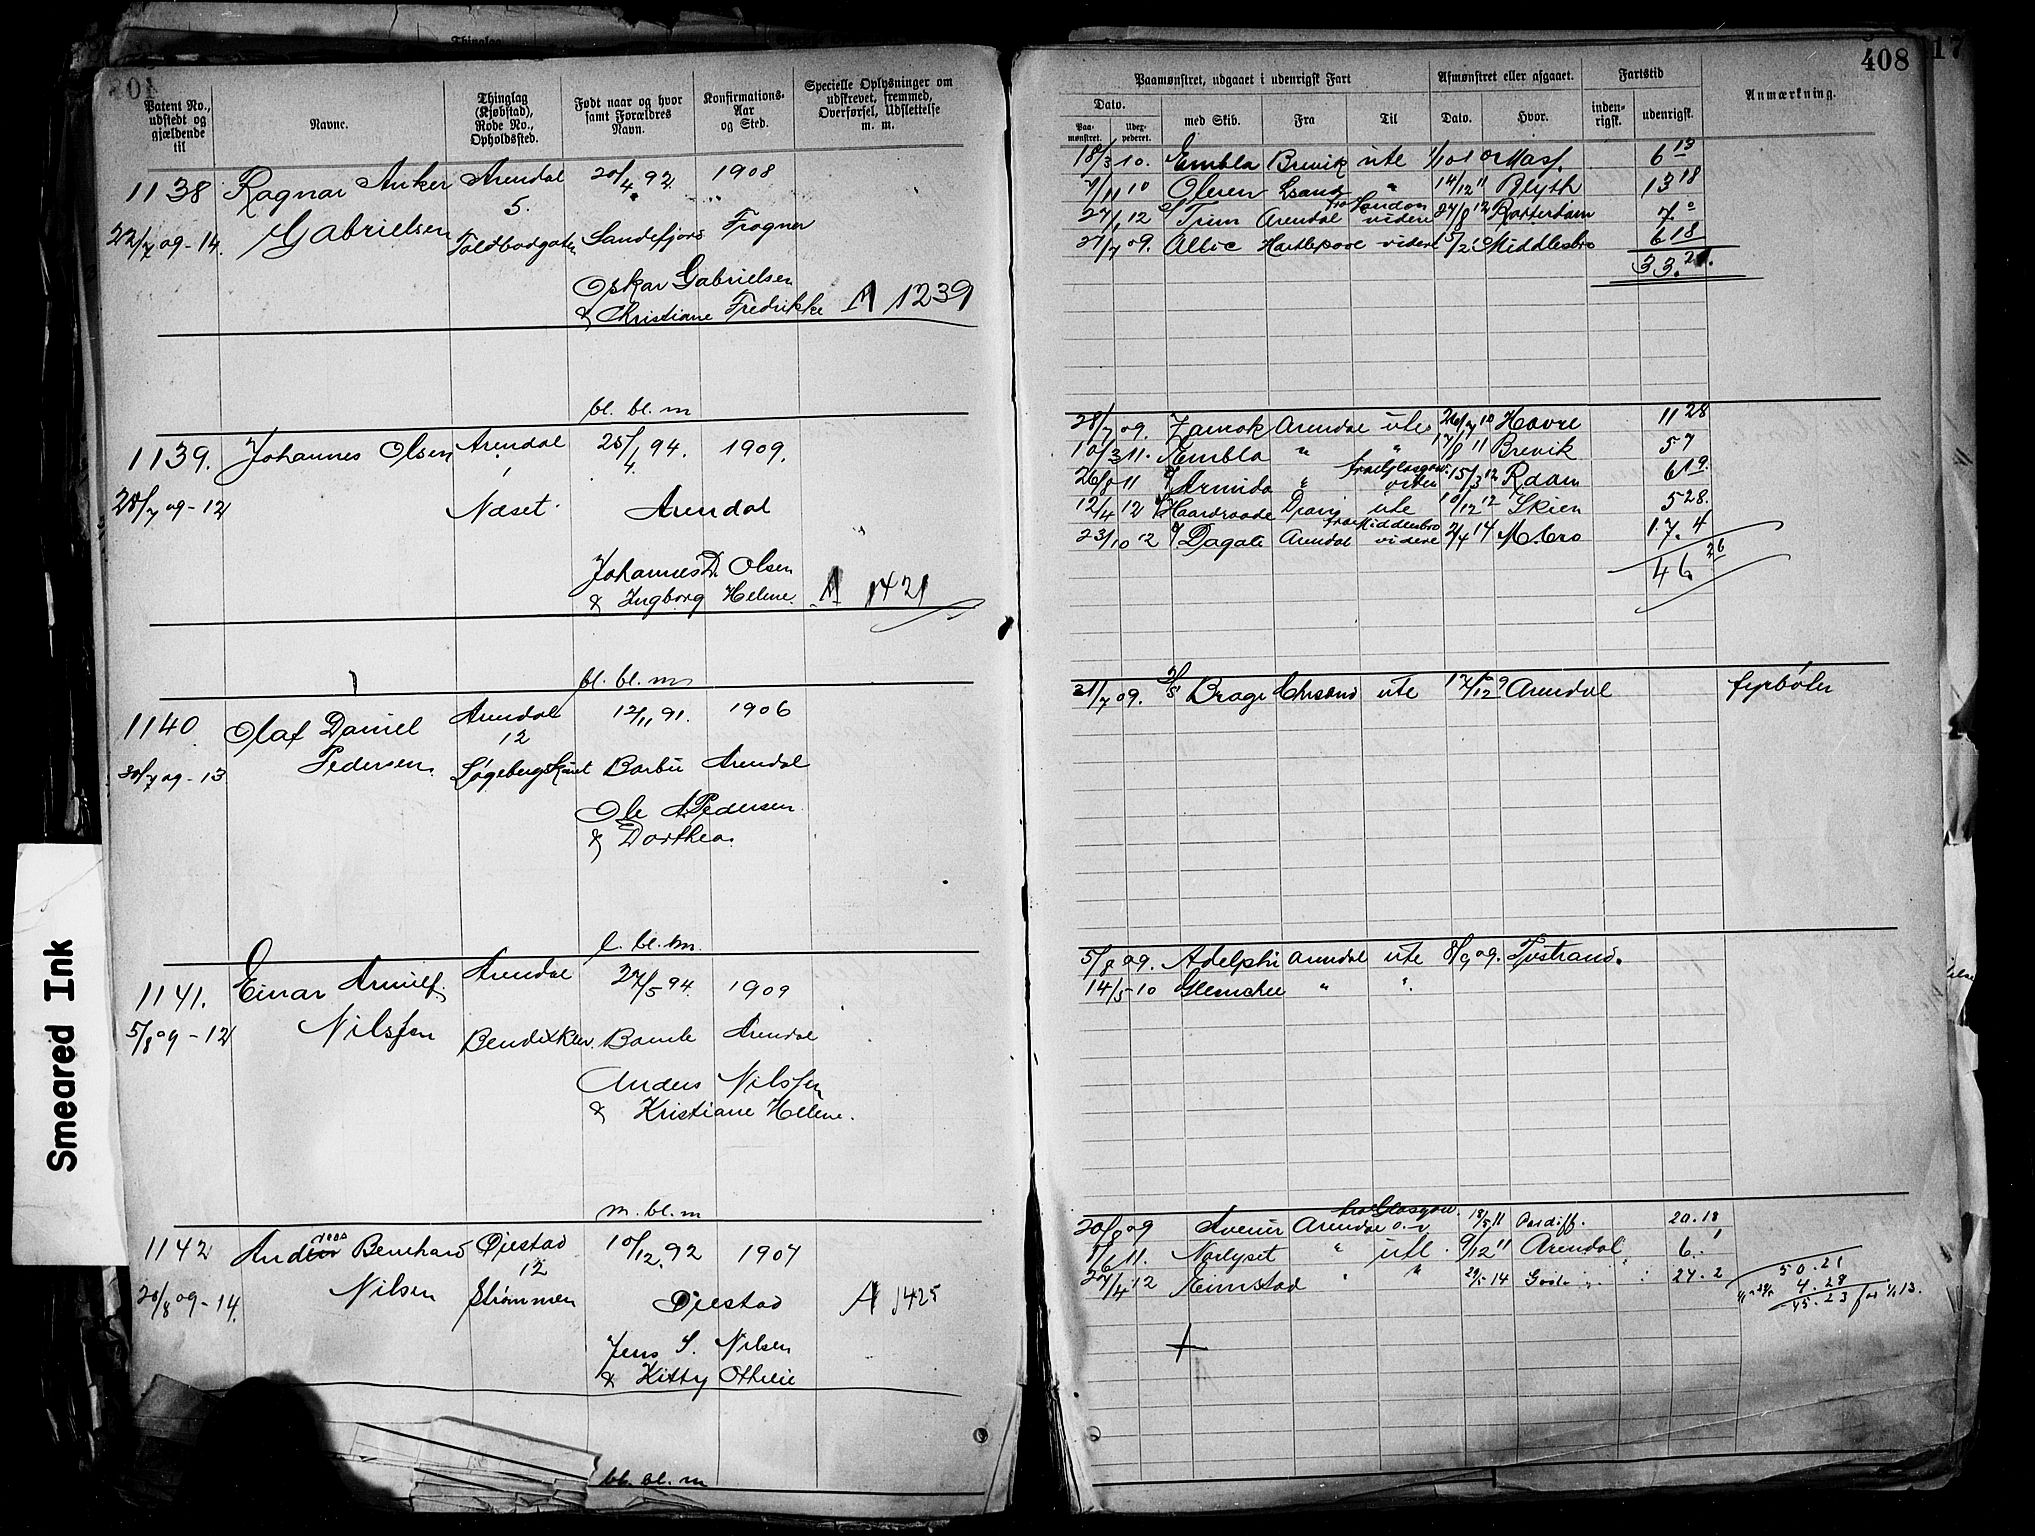 408
17
Patent No., udstedt og gjældende til
Navne.
Thinglag (Kjøbstad), Rode No., Opholdssted.
Født naar og hvor samt Forældres Navn.
Konfirmations-Aar og Sted.
Specielle Oplysninger om udskrevet, fremmed, Overførsel, Udslettelse m. m.
Paamønstret, udgaaet i udenrigsk Fart
Afmønstret eller afgaaet.
Fartstid
Anmærkning.
Dato.
Paa-mønstret.
Udex-pederet.
med Skib.
Fra
Til
Dato.
Hvor.
inden-rigsk.
udenrigsk.
1138 Ragnar Anker Arendal 20/4 92. 1908
5.
22/7 09-14. Gabrielsen Toldbodgaten Sandefjord Frogner
Oskar Gabrielsen
& Christiane Fredrikke A 1239
bl. bl. m
18/3 10. Embla Brevik ute 1/10 10 Mass. 6 13
7/11 10 Olesen Gsand " 14/12 11 Blyth 13 18
27/1 12 Trim Arendal fra London videre 27/8 12 Rotterdam 7 0
27/7 09. Alloe Hartlepool videre 5/2 10 Middlesbro 6 18
33. 21.
1139. Johannes Olsen Arendal 25/4 94. 1909.
28/7 09-12 Næset. Arendal
Johannes D. Olsen
& Ingborg Helene. A 1421
bl. bl. m
28/7 09. Zamok Arendal ute 26/7 10 Havre 11 28
10/3 11. Embla " " 17/8 11 Brevik 5 7
26/8 11 Armida " fra Glasgow. viden 15/3 12 Rdam 6 19.
12/4 12 Haardraade Dram ute 10/12 12 Skien 5 28.
23/10 12 Dagali Arendal fra Middlesbro videre 2/4 14 M.bro 17. 4
46. 26
1140 Olaf Daniel Arendal 12/11 91. 1906
12
30/7 09-13 Pedersen. Løgebergskaret Barbu Arendal
Ole A. Pedersen
& Dorthea.
l. bl. m.
31/7 09. D/S Brage Chrsand ute 12/12 09 Arendal fyrbøter
1141. Einar Arnulf. Arendal 27/5 94. 1909
5/8 09-12 Nilssen Bendixklev. Bamle Arendal
Anders Nilssen
& Kristiane Helene.
m. bl. m
5/8 09. Adelphi Arendal ute 8/9 09. Tvstrand.
14/5 10 Glenchee " "
1142 Andreas Bernhard Øiestad 10/12. 92 1907
12
20/8 09-14. Nilsen Strømmen Øiestad A 1425
Jens S. Nilsen
& Kitty Othelie
bl. bl. m
20/8 09 Avenir Arendal fra Glasgow. o.v 18/5 11 Cardiff. 20. 18
1/6 11. Norlyset " utl. 9/12 11 Arendal 6. 1
27/4 12 Rimstad " " 29/5 14 24. 2
50. 21
4. 28
45. 23 for 1/1 13.
Smeared Ink